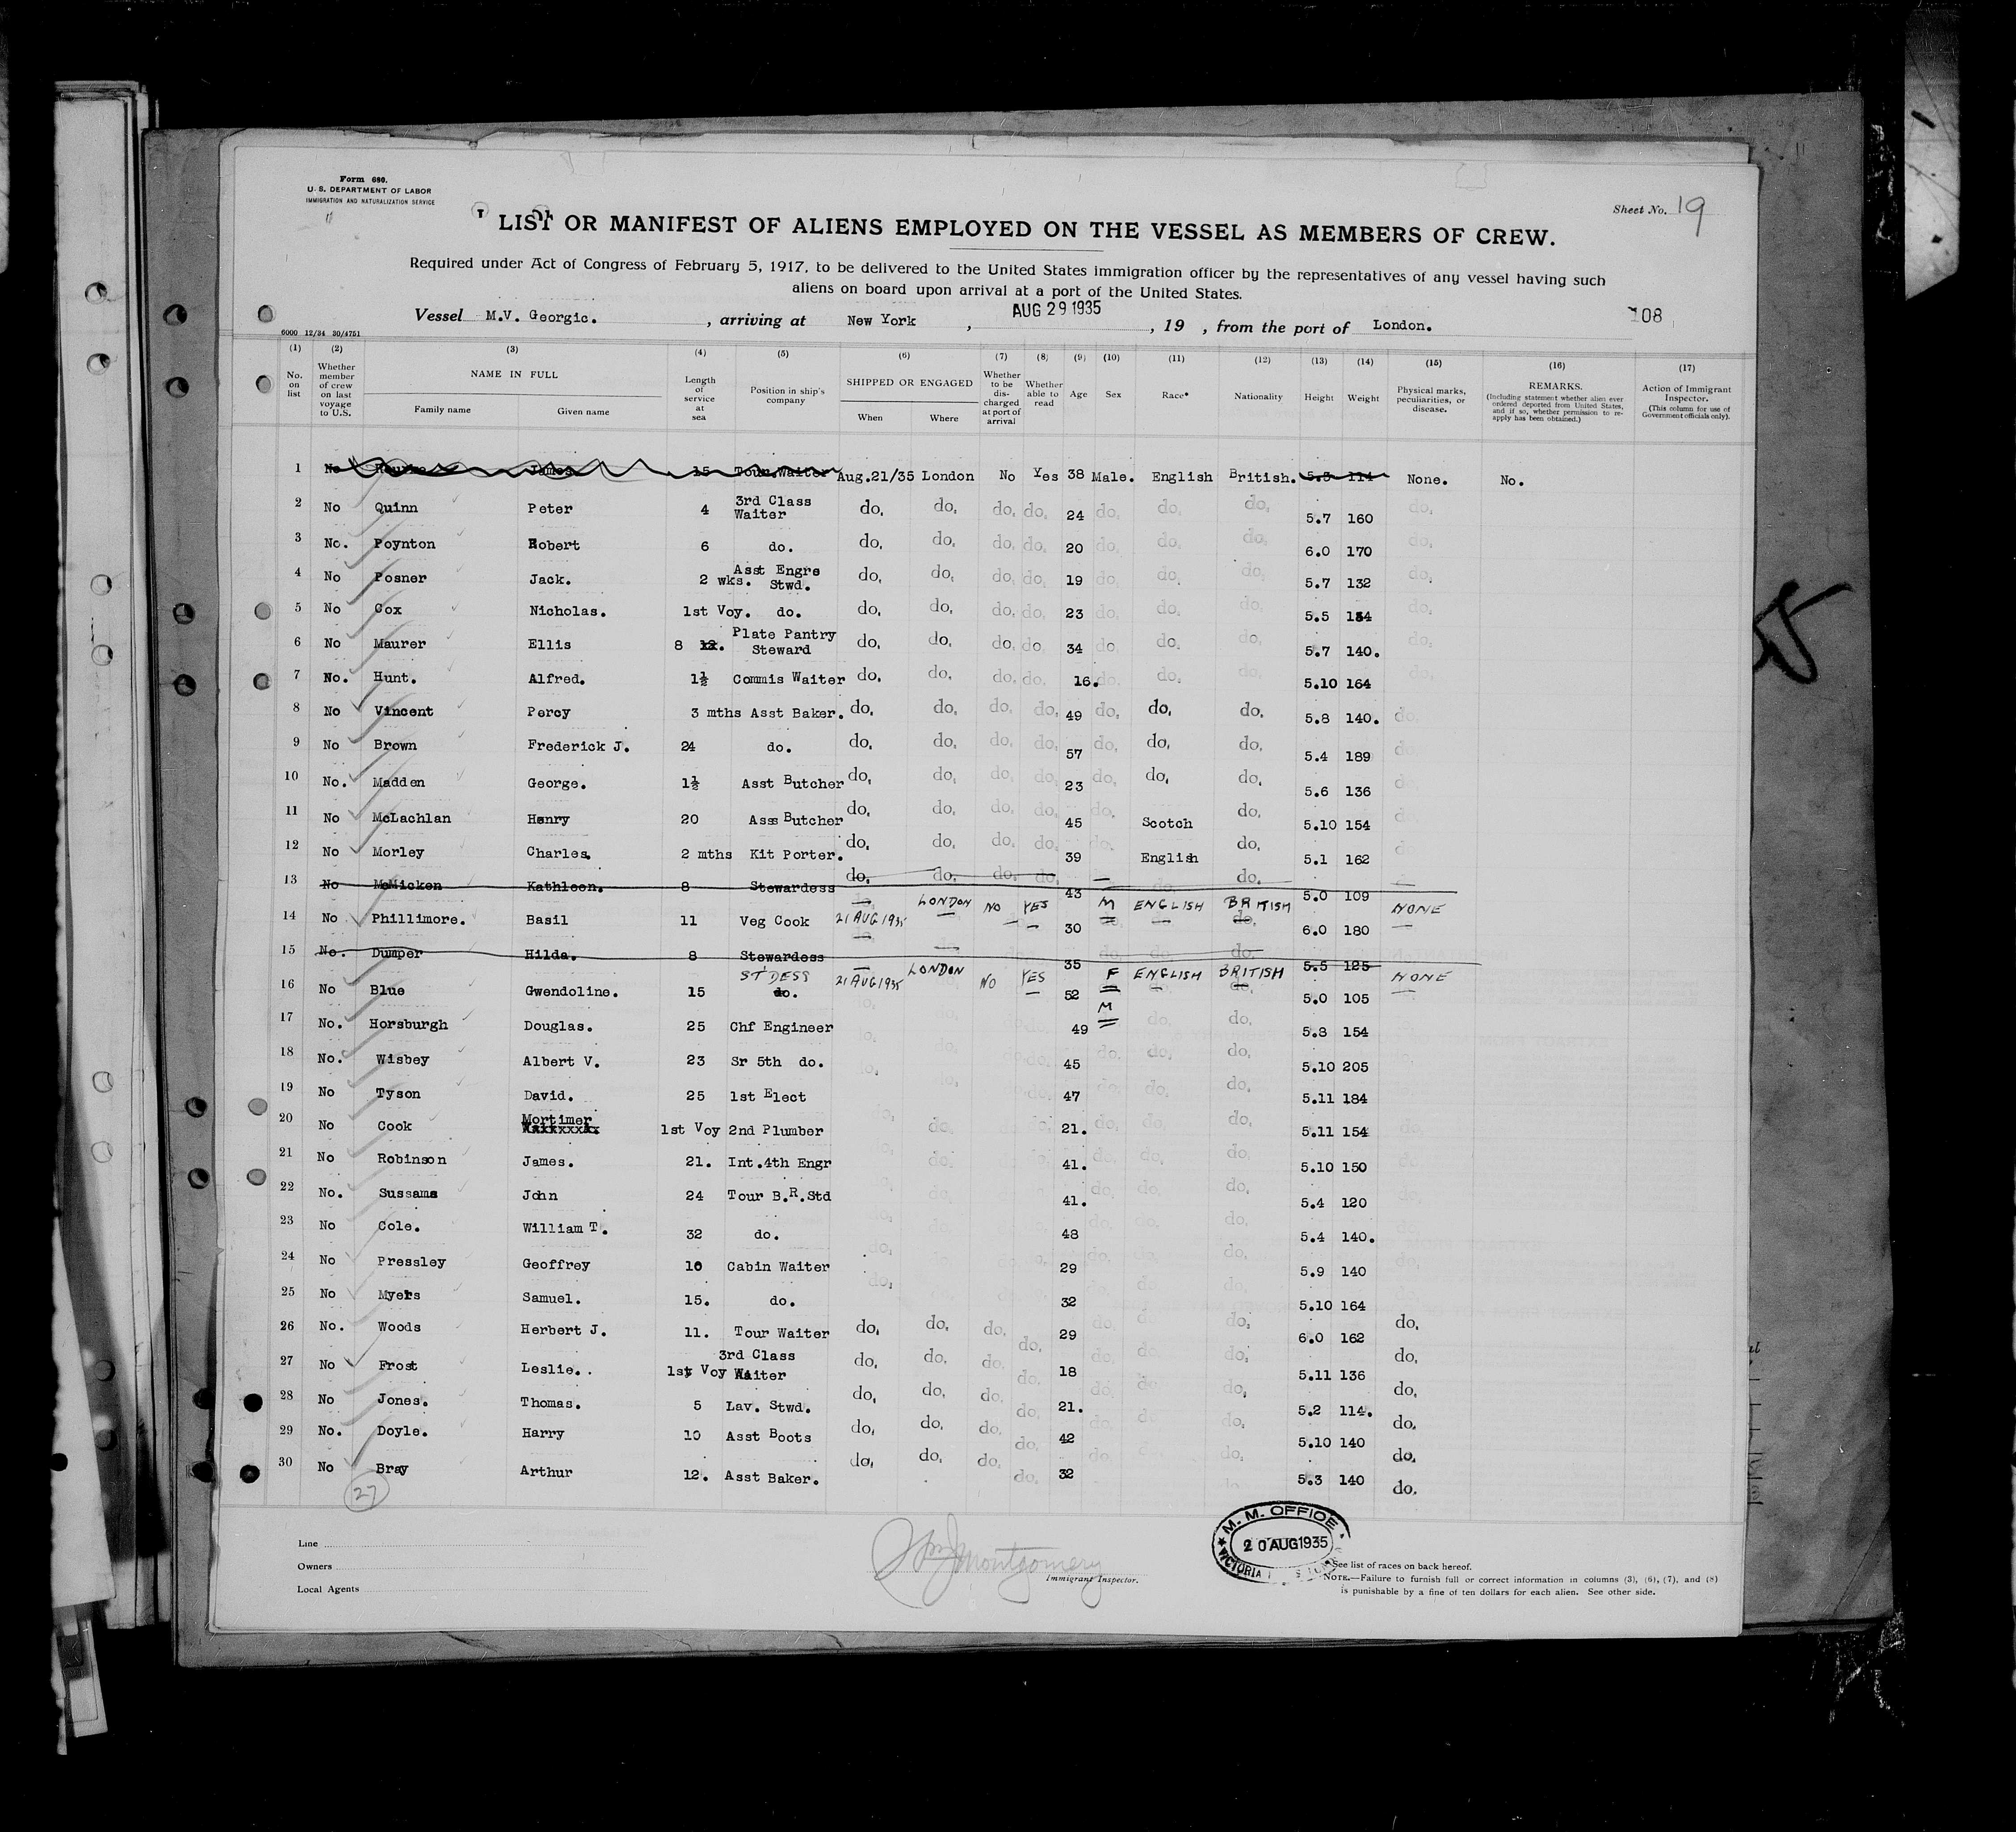 Form 680.
U. S. DEPARTMENT OF LABOR
IMMIGRATION AND NATURALIZATION SERVICE
Sheet No. 19
LIST OR MANIFEST OF ALIENS EMPLOYED ON THE VESSEL AS MEMBERS OF CREW.
Required under Act of Congress of February 5, 1917, to be delivered to the United States immigration officer by the representatives of any vessel having such
aliens on board upon arrival at a port of the United States.
Vessel M.V. Georgic. , arriving at New York , AUG 29 1935 , 19 , from the port of London. 108
6000 12/34 30/4751
(1) (2) (3) (4) (5) (6) (7) (8) (9) (10) (11) (12) (13) (14) (15) (16) (17)
No. on list
Whether member of crew on last voyage to U.S.
NAME IN FULL
Family name Given name
Length of service at sea
Position in ship's company
SHIPPED OR ENGAGED
When Where
Whether to be discharged at port of arrival
Whether able to read
Age
Sex
Race*
Nationality
Height
Weight
Physical marks, peculiarities, or disease.
REMARKS.
(Including statement whether alien ever ordered deported from United States, and if so, whether permission to re-apply has been obtained.)
Action of Immigrant Inspector.
(This column for use of Government officials only).
1 No James 15 Tour.Waiter Aug.21/35 London No Yes 38 Male. English British. 5.8 114 None. No.
2 No Quinn Peter 4 3rd Class Waiter do. do. do. do. 24 do. do. do. 5.7 160 do.
3 No. Poynton Robert 6 do. do. do. do. do. 20 do. do. do. 6.0 170 do.
4 No Posner Jack. 2 wks. Asst Engrs Stwd. do. do. do. do. 19 do. do. do. 5.7 132 do.
5 No Cox Nicholas. 1st Voy. do. do. do. do. do. 23 do. do. do. 5.5 134 do.
6 No Maurer Ellis 8 Plate Pantry Steward do. do. do. do. 34 do. do. do. 5.7 140. do.
7 No. Hunt. Alfred. 1½ Commis Waiter do. do. do. do. 16. do. do. do. 5.10 164 do.
8 No Vincent Percy 3 mths Asst Baker. do. do. do. do. 49 do. do. do. 5.8 140. do.
9 No Brown Frederick J. 24 do. do. do. do. do. 57 do. do. do. 5.4 189 do.
10 No. Madden George. 1½ Asst Butcher do. do. do. do. 23 do. do. do. 5.6 136 do.
11 No McLachlan Henry 20 Asss Butcher do. do. do. do. 45 do. Scotch do. 5.10 154 do.
12 No Morley Charles. 2 mths Kit Porter. do. do. do. do. 39 do. English do. 5.1 162 do.
13 No McMicken Kathleen. 8 Stewardess do. do. do. do. 43 do. do. 5.0 109
14 No Phillimore. Basil 11 Veg Cook 21 AUG 1935 LONDON NO YES 30 M ENGLISH BRITISH do. 6.0 180 NONE
15 No. Dumper Hilda. 8 Stewardess 35 do. do. do. 5.5 125
16 No Blue Gwendoline. 15 ST'DESS do. 21 AUG 1935 LONDON NO YES 52 F ENGLISH BRITISH do. 5.0 105 NONE
17 No. Horsburgh Douglas. 25 Chf Engineer 49 M do. do. 5.8 154
18 No. Wisbey Albert V. 23 Sr 5th do. 45 do. do. do. 5.10 205
19 No Tyson David. 25 1st Elect 47 do. do. do. 5.11 184
20 No Cook Mortimer 1st Voy 2nd Plumber 21. do. do. do. 5.11 154
21 No Robinson James. 21. Int.4th Engr 41. do. do. do. 5.10 150
22 No. Sussams John 24 Tour B.R.Std 41. do. do. do. 5.4 120
23 No Cole. William T. 32 do. 48 do. do. do. 5.4 140.
24 No Pressley Geoffrey 10 Cabin Waiter do. 29 do. do. 5.9 140
25 No Myers Samuel. 15. do. do. 32 do. do. 5.10 164
26 No. Woods Herbert J. 11. Tour Waiter do. do. do. do. 29 do. do. do. 6.0 162 do.
27 No Frost Leslie.. 1st Voy 3rd Class Waiter do. do. do. do. 18 do. do. do. 5.11 136 do.
28 No Jones. Thomas. 5 Lav. Stwd. do. do. do. do. 21. do. do. do. 5.2 114. do.
29 No. Doyle. Harry 10 Asst Boots do. do. do. do. 42 do. do. do. 5.10 140 do.
30 No Bray Arthur 12. Asst Baker. do. do. do. do. 32 do. do. 5.3 140 do.
do.
27
Line
Owners
Local Agents
Montgomery
Immigrant Inspector.
M. M. OFFICE
20 AUG 1935
VICTORIA
*See list of races on back hereof.
NOTE.—Failure to furnish full or correct information in columns (3), (6), (7), and (8)
is punishable by a fine of ten dollars for each alien. See other side.